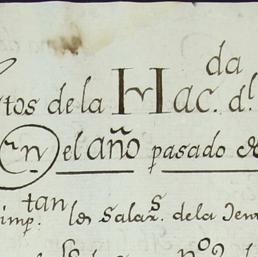 tos de la Hac.da dl
en el año pasado de
imp.tan los Salar.s de la